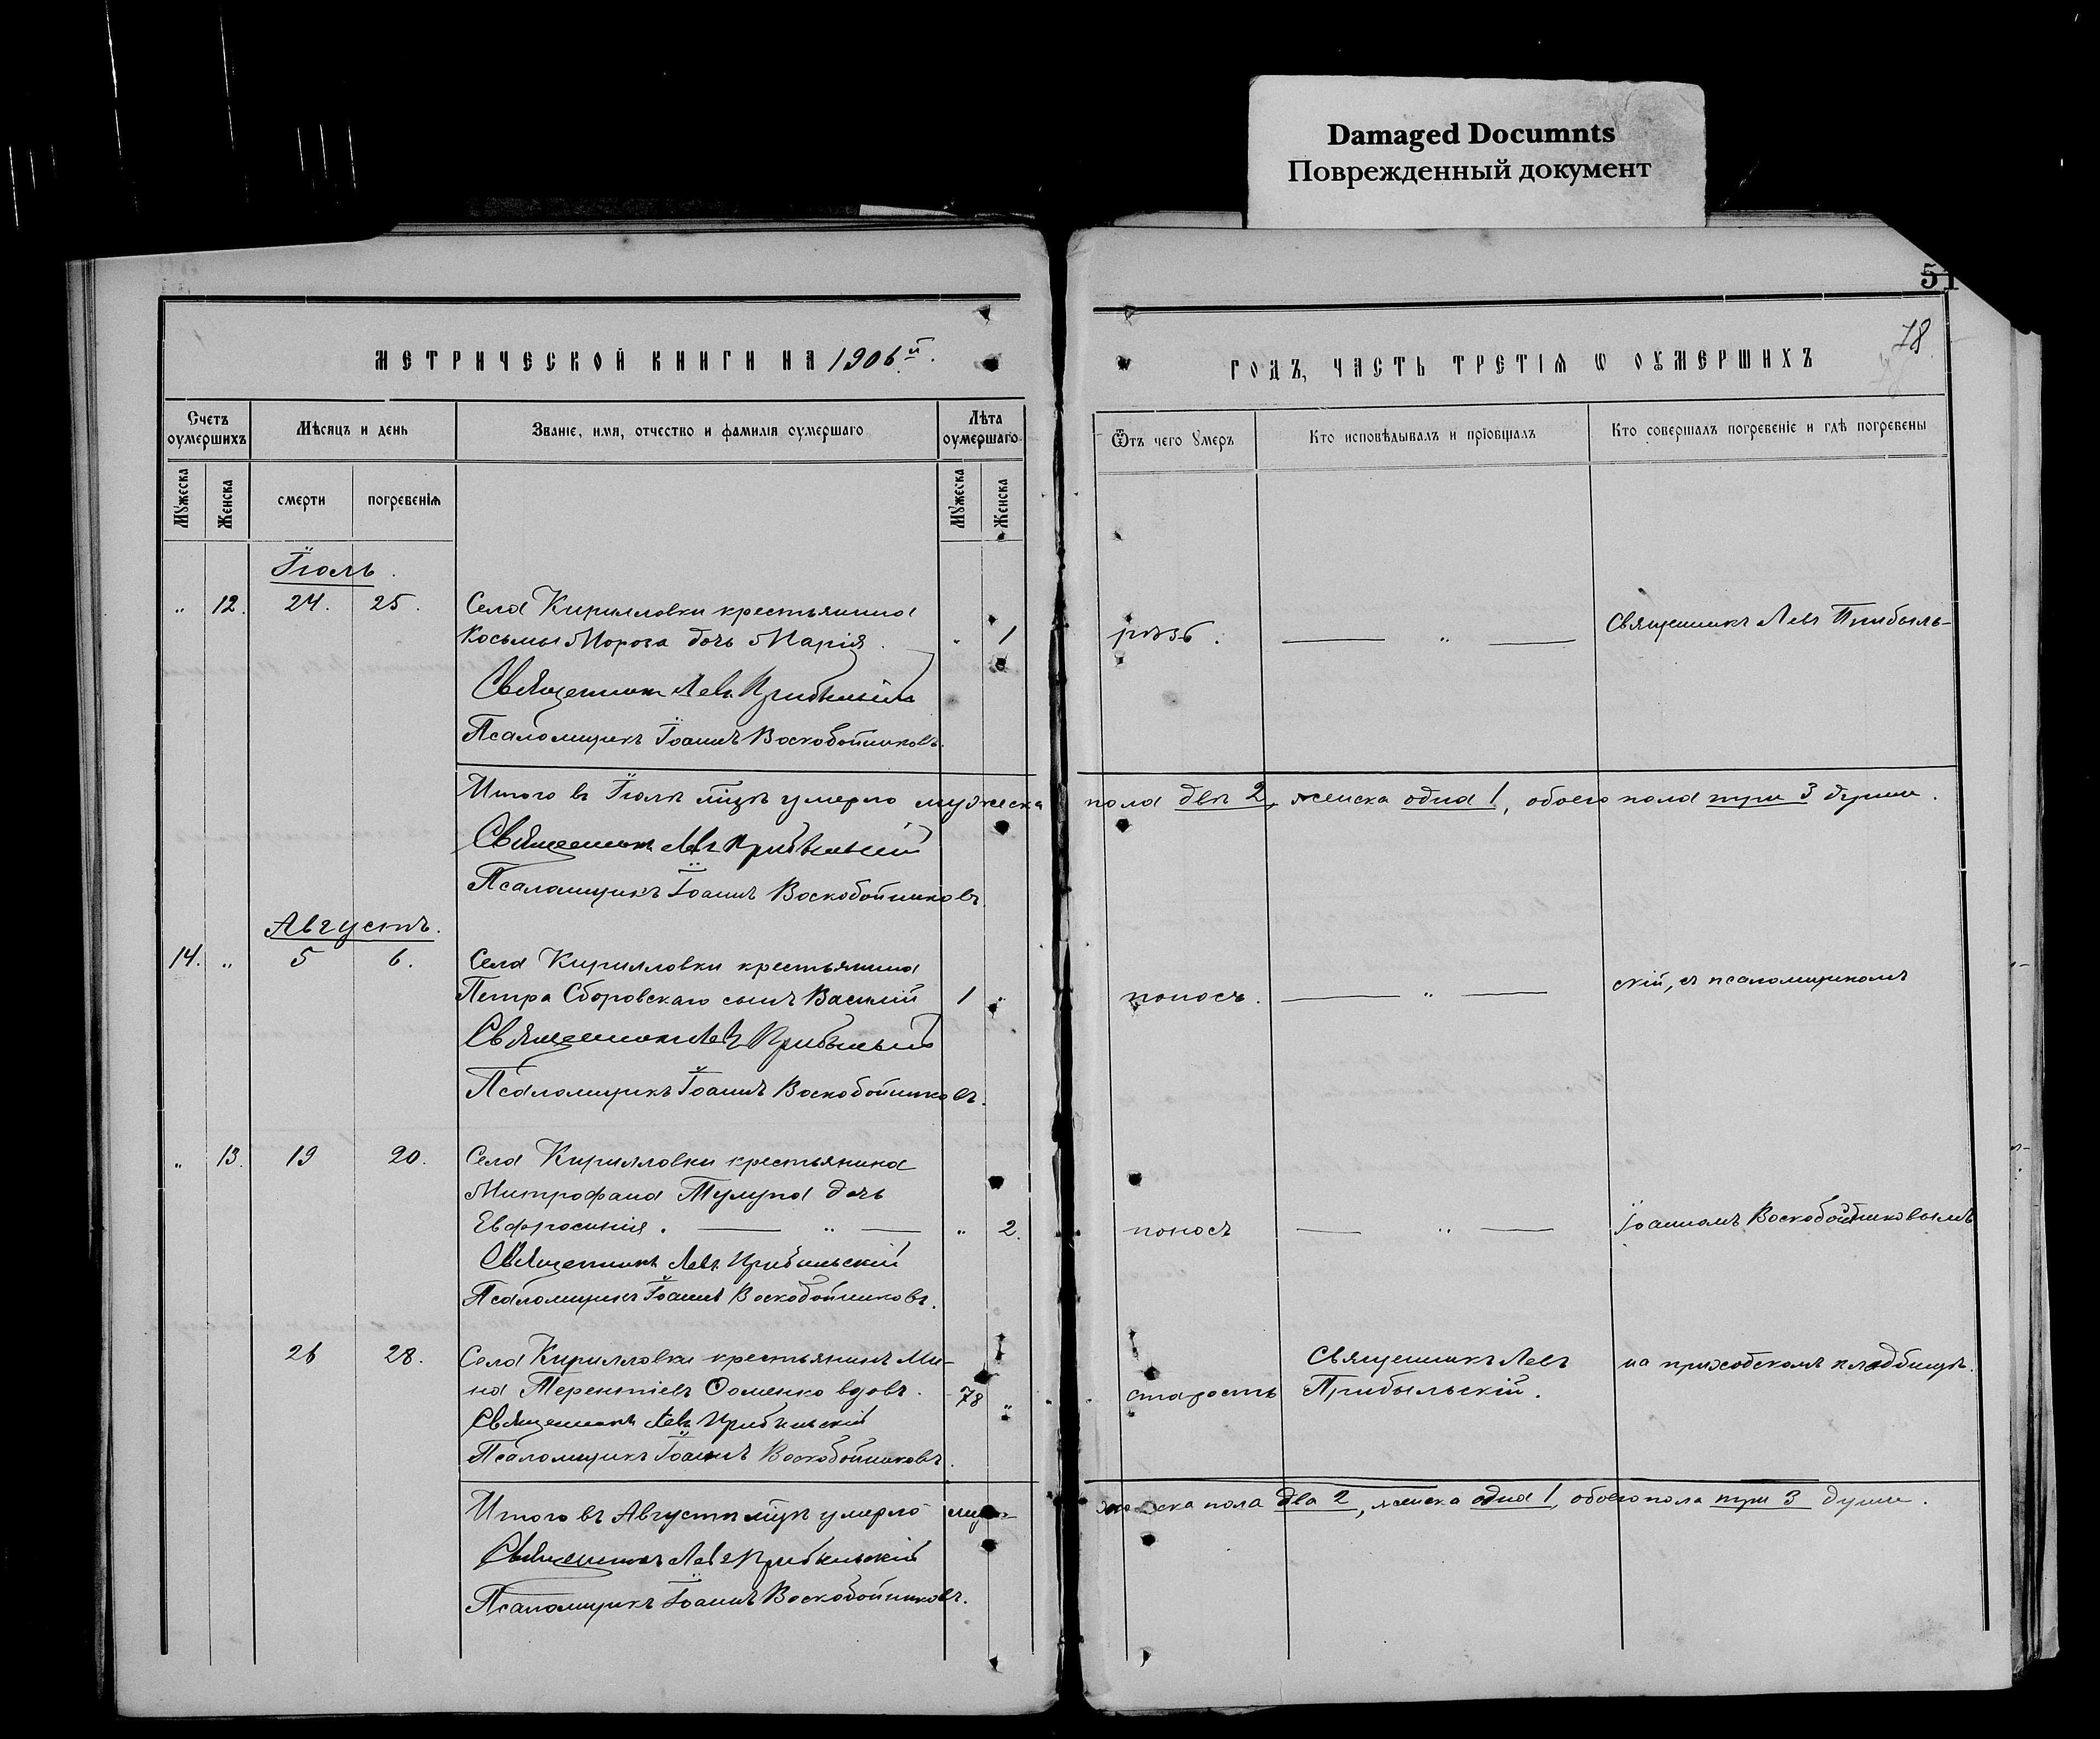 Damaged Documnts
Поврежденный документ
51
78
МЕТРИЧЕСКОЙ КНИГИ НА 1906 й.
ГОДЪ, ЧАСТЬ ТРЕТІѦ Ѡ ОУМЕРШИХЪ
Счетъ оумершихъ
Мѣсяцъ и день
Званіе, имя, отчество и фамилія оумершаго
Лѣта оумершаго
Ѿтъ чего умеръ
Кто исповѣдывалъ и прїобщалъ
Кто совершалъ погребеніе и гдѣ погребены
Мужеска
Женска
смерти
погребенія
Мужеска
Женска
Іюль.
„ 12. 24. 25. Села Кирилловки крестьянина
Косьмы Мороза дочь Марія. „ 1
Священникъ Левъ Прибыльскій
Псаломщикъ Іоаннъ Воскобойниковъ.
Священникъ Левъ Прибыль-
Итого въ Іюлѣ мцѣ умерло мужеска пола двѣ 2, женска одна 1, обоего пола три 3 души.
Священникъ Левъ Прибыльскій
Псаломщикъ Іоаннъ Воскобойниковъ.
Августъ.
14. „ 5 6. Села Кирилловки крестьянина
Петра Сборовскаго сынъ Василій 1 „ поносъ. — „ —
скій, съ псаломщикомъ
Священникъ Левъ Прибыльскій
Псаломщикъ Іоаннъ Воскобойниковъ.
„ 13. 19 20. Села Кирилловки крестьянина
Митрофана Тулупа дочь
Евфросинія. — „ — „ 2. поносъ — „ — Іоанномъ Воскобойниковымъ
Священникъ Левъ Прибыльскій
Псаломщикъ Іоаннъ Воскобойниковъ.
26 28. Села Кирилловки крестьянинъ Ми-
на Терентіевъ Ѳоменко вдовъ. 78 „ старость
Священникъ Левъ
Прибыльскій.
на приходскомъ кладбищѣ.
Священникъ Левъ Прибыльскій
Псаломщикъ Іоаннъ Воскобойниковъ.
Итого въ Августѣ мцѣ умерло муже-
ска пола два 2, женска одна 1, обоего пола три 3 души.
Священникъ Левъ Прибыльскій
Псаломщикъ Іоаннъ Воскобойниковъ.